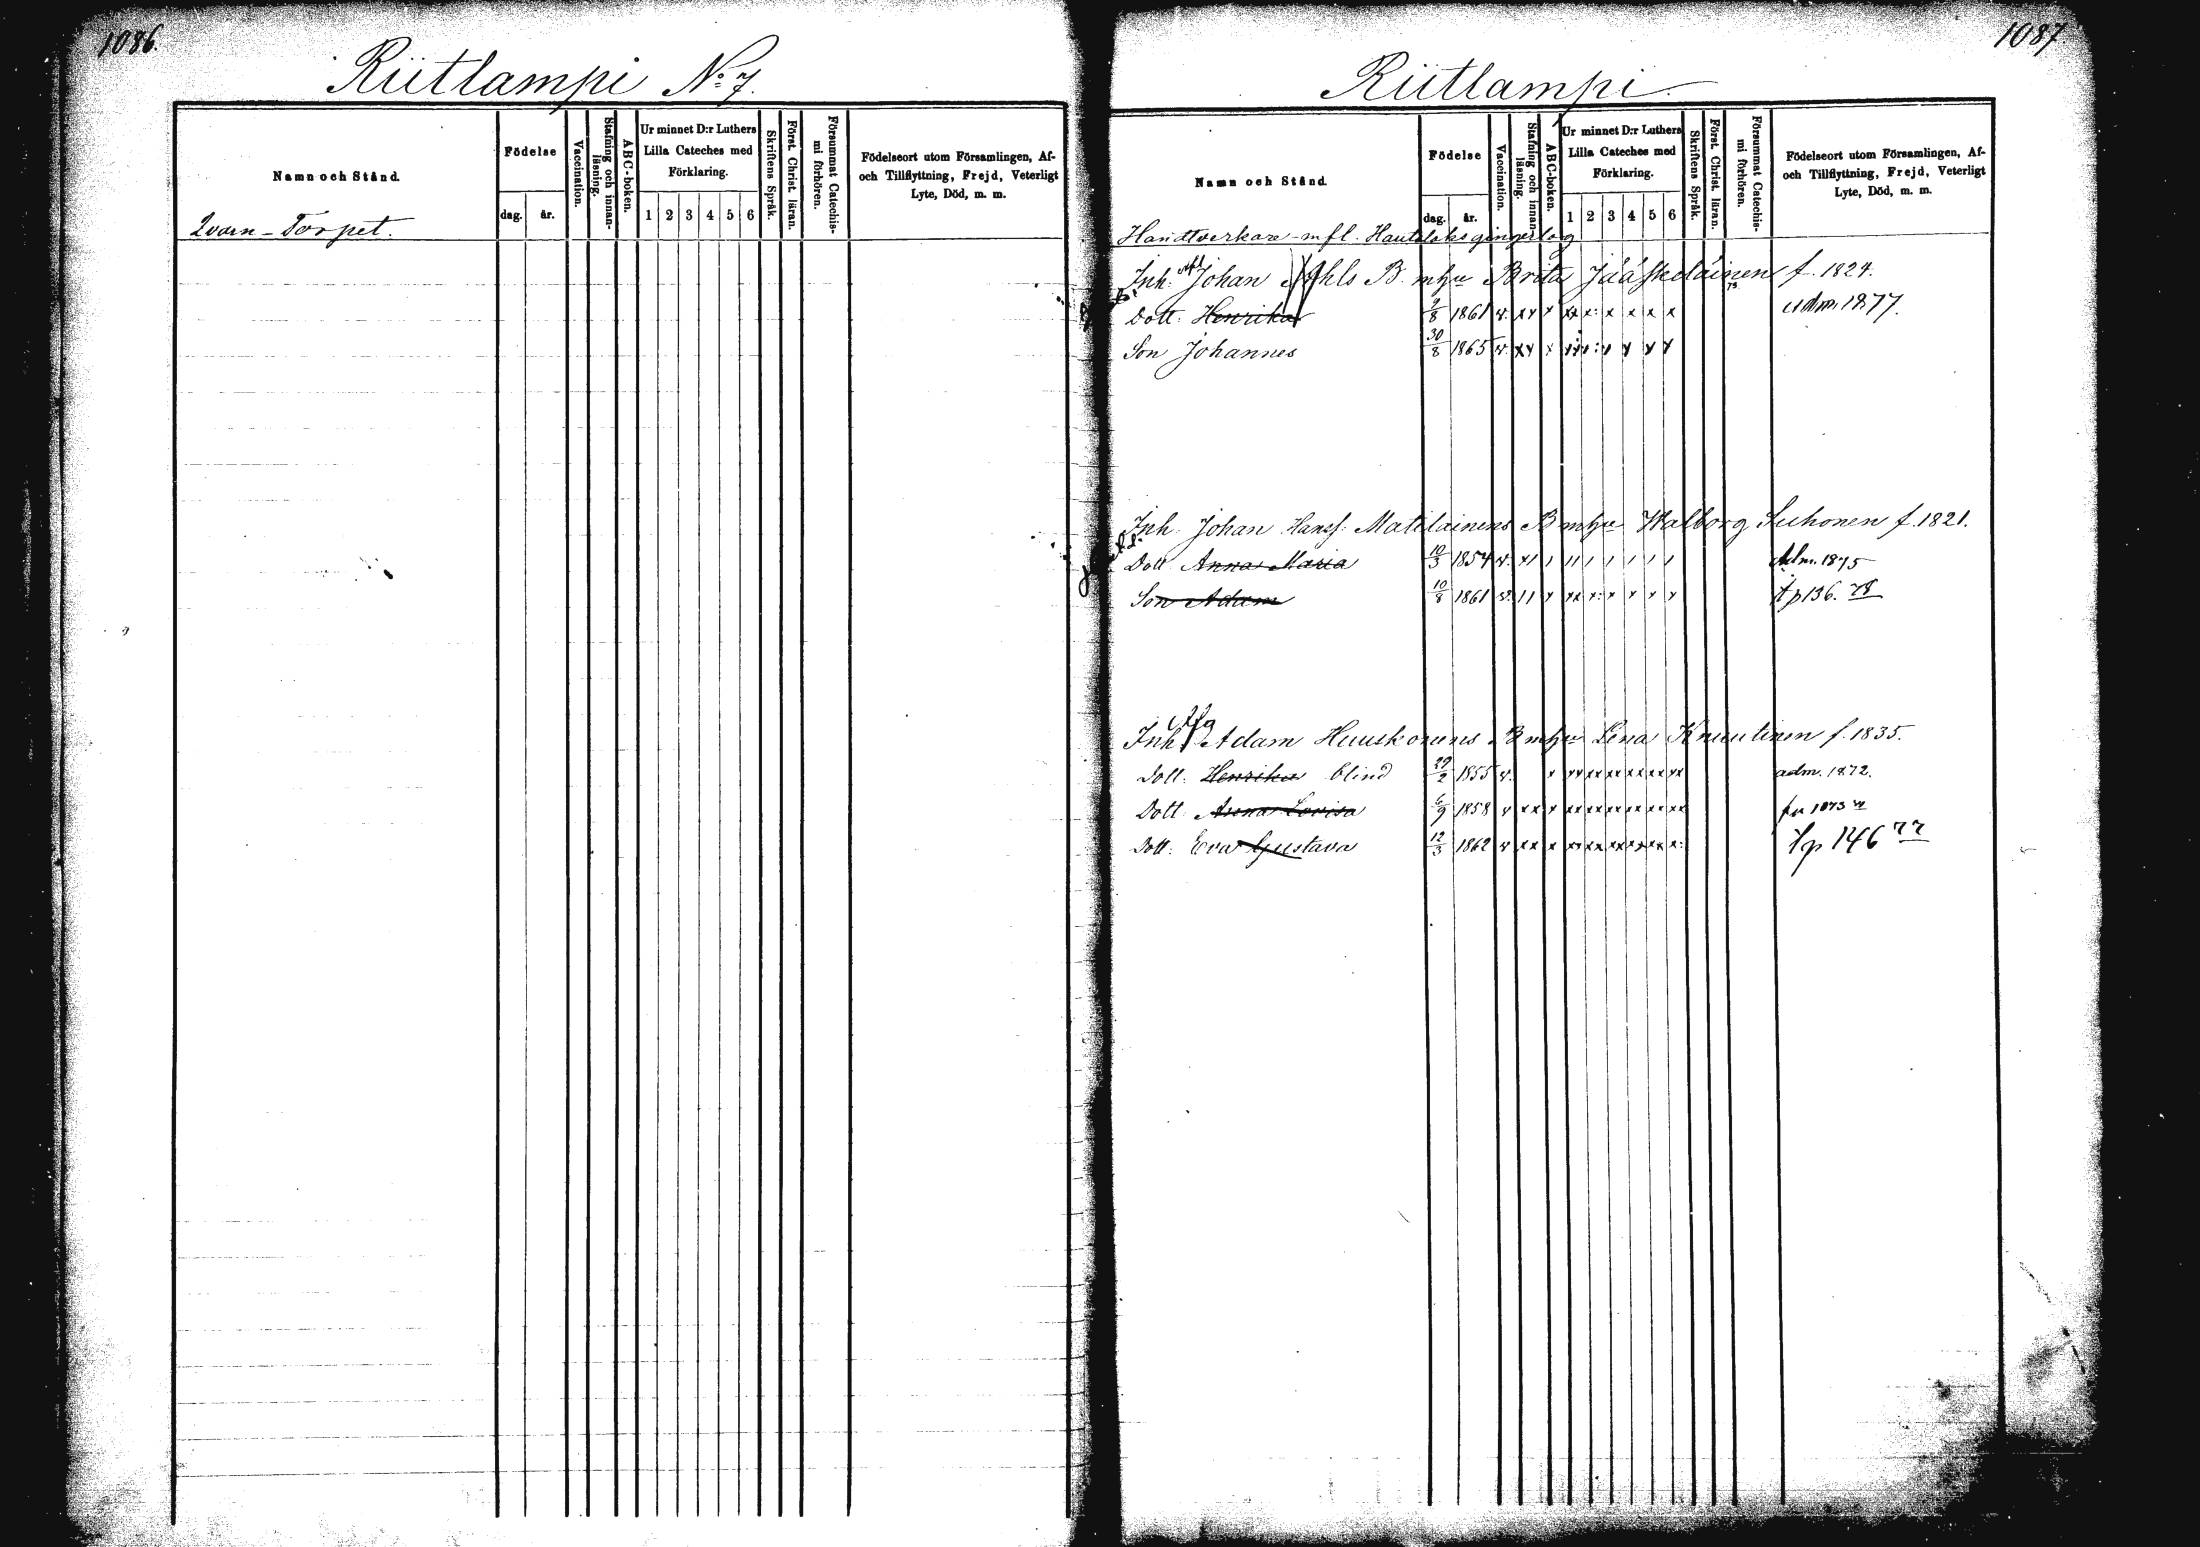 1086.
Riitlampi No 7.
Namn och Stånd.
Födelse
dag. år.
Vaccination.
Stafning och innan-läsning.
ABC-boken.
Ur minnet D:r Luthers
Lilla Cateches med
Förklaring.
1 2 3 4 5 6
Skriftens Språk.
Först. Christ. läran.
Försummat Catechis-mi förhören.
Födelseort utom Församlingen, Af-
och Tillflyttning, Frejd, Veterligt
Lyte, Död, m. m.
Qvarn-Torpet.
1087
Riitlampi.
Namn och Stånd.
Födelse
dag. år.
Vaccination.
Stafning och innan-läsning.
ABC-boken.
Ur minnet D:r Luthers
Lilla Cateches med
Förklaring.
1 2 3 4 5 6
Skriftens Språk.
Först. Christ. läran.
Försummat Catechis-mi förhören.
Födelseort utom Församlingen, Af-
och Tillflyttning, Frejd, Veterligt
Lyte, Död, m. m.
Handtverkare m fl.
Inh. Johan B. mhu Brita Jääskeläinen f. 1824.
Dott. Henrika 9/8 1861 v. xx x xx x: x x x x adm. 1877.
Son Johannes 30/8 1865 v. xx x
Inh. Johan Hanss. Matilainens B mhu Walborg Suhonen f. 1821.
Dott Anna Maria 10/3 1854 v. adm. 1875
Son Adam 10/8 1861 v. 11 x xx x: x x x x tp 136. 78
Inh Adam Huuskonens B mhu Lena Knuutinen f. 1835.
Dott. Henrika blind 29/2 1855 v. x xx xx xx xx xx xx adm. 1872.
Dott. Anna Lovisa 6/9 1858 v xx x xx xx xx xx xx xx 1073
Dott. Eva Gustava 12/3 1862 v xx x xx xx xx xx xx x: tp 146 77